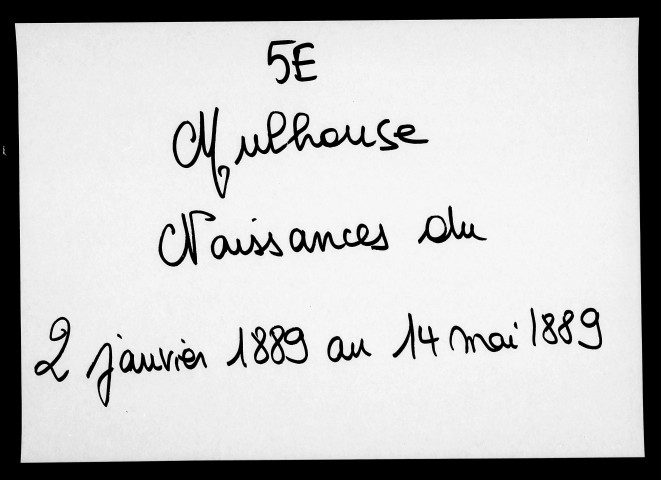 5E
Mulhouse
Naissances du
2 janvier 1889 au 14 mai 1889